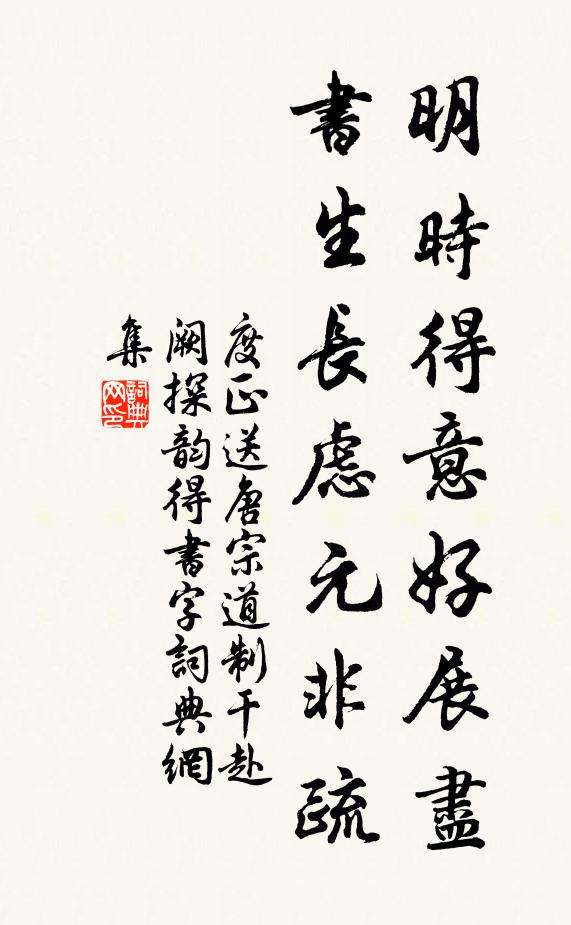 明時得意好展盡
書生長慮元非疏
度正送唐宗道制干赴
闕探韵得書字詞典網
集
詞典
网印